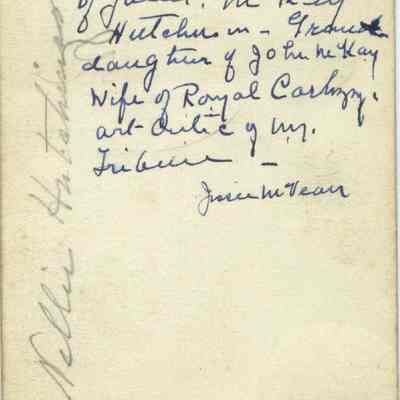 of James. McKay
Hutchinson - Grand
daughter of John McKay
Wife of Royal Cortizzy.
art Critic of N.Y.
Tribune -
Josie McVean
Nellie Hutchinson